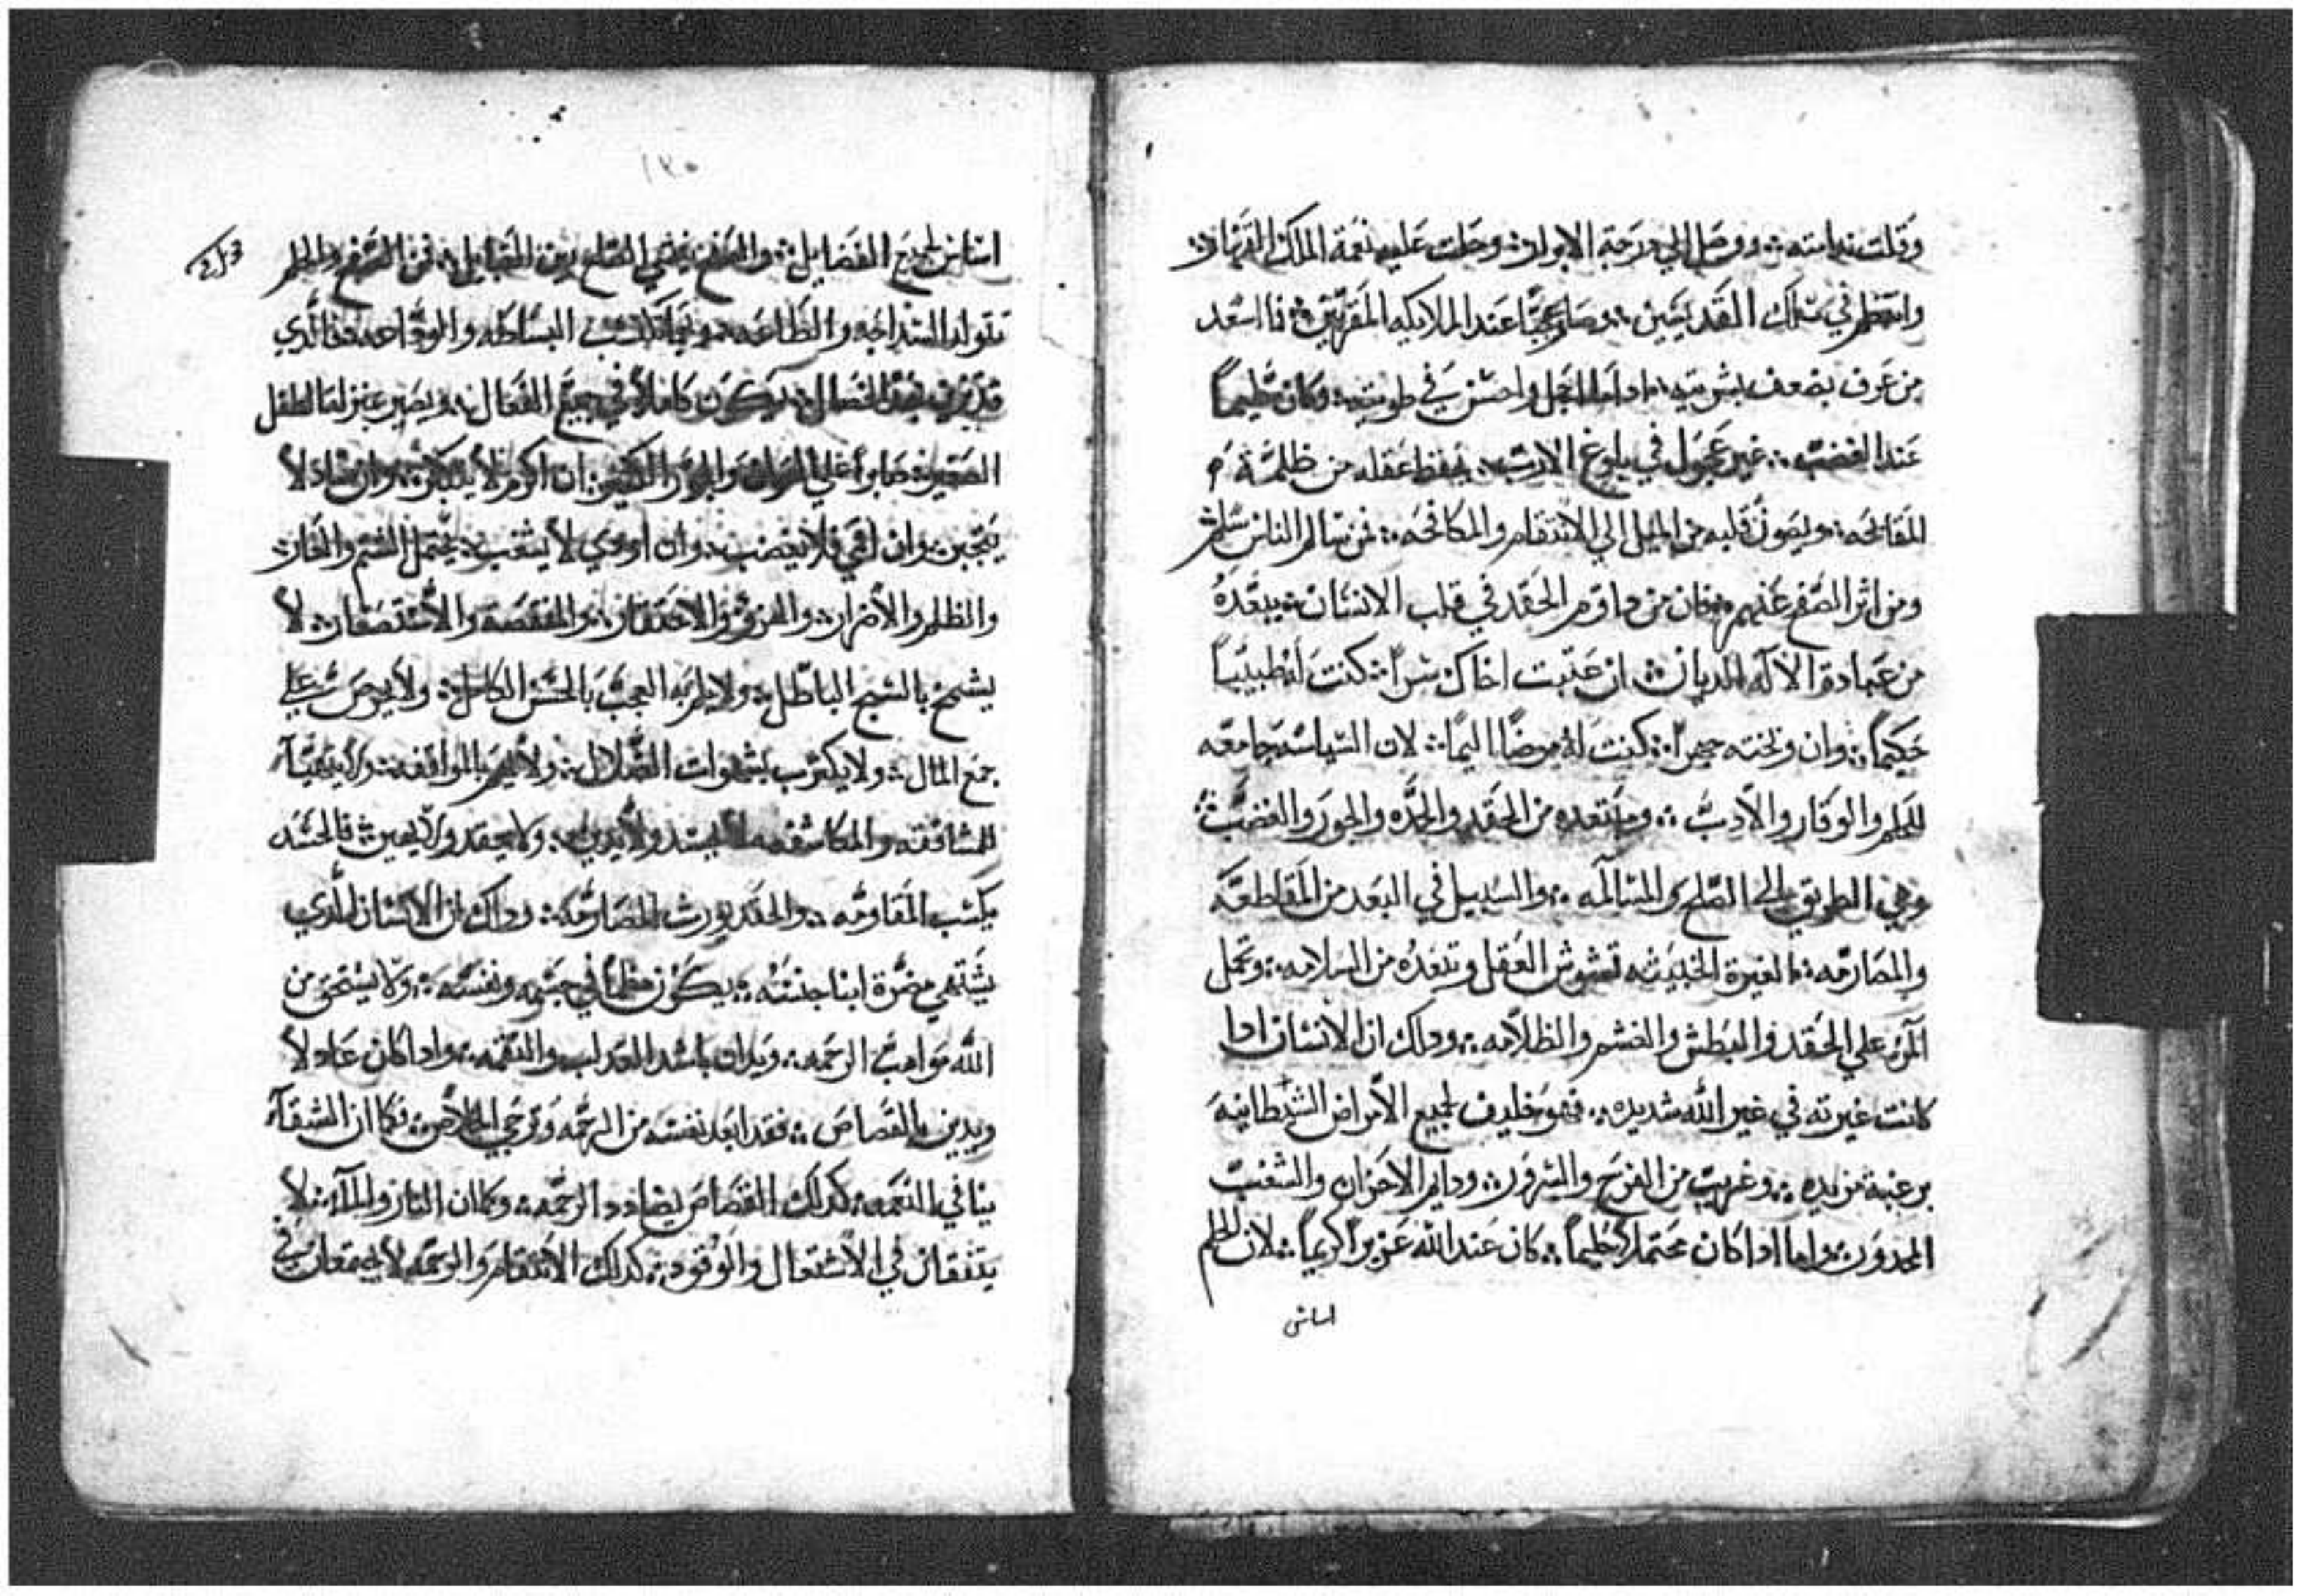 وقلت ندامته ؞ ووصل الي درجة الابرار ؞ وحلت عليه نعمة الملك القهار ؞
وانتظم في سلك القديسين ؞ وصار عند الملايكه المقربين ؞ فما اسعد
من عرف بضعف بشريته ؞ واحسن في طويته ؞ وكان حليماً
عند الغضب ؞ غير عجول في بلوغ الارب ؞ يحفظ عقله من ظلمة
المقابحه ؞ ويصون قلبه من الميل الي الانتقام والمكافحه ؞ فمن سالم الناس سلم
ومن اثر الصفح غنم ؞ فان من داوم الحقد في قلب الانسان ؞ يبعده
من عبادة الاله الديان ؞ ان عتبت اخاك سراً ؞ كنت له طبيباً
حكيماً ؞ وان وبخته جهراً ؞ كنت له مرضاً اليماً ؞ لان السياسه جامعه
للحلم والوقار والادب ؞ ومبتعده من الحقد والحده والجور والغضب ؞
وهي الطريق الي الصلح والمسالمه ؞ والسبيل في البعد من المقاطعه
والمصارمه ؞ الغيرة الخبيثه تشوش العقل وتبعده من السلامه ؞ وتحمل
المرء علي الحقد والبطش والغشم والظلامه ؞ ودلك ان الانسان ادا
كانت غيرته في غير الله شديده ؞ فهو حليف لجميع الامراض الشيطانيه
برغبة مزيده ؞ وغريب من الفرح والسرور ؞ ودايم الاحزان والشغب
واما ادا كان محتملاً حليماً ؞ كان عند الله عزيزاً كريماً ؞ لان الحلم
اساس
١٣٥
اساس لجميع الفضايل ؞ والصفح يفضي الصلح بين القبايل ؞ فمن الصفح والحلم
تتولد السداجه والطاعه ؞ البساطه والوداعه ؞ فالدي
قد تزين بهده الخصال ؞ يكون كاملاً في جميع الفعال ؞ ويصير بمنزلة الطفل
الصغير ؞ صابراً علي ؞ ان اكرم لا يتكبر ؞ وان ساد لا
يتجبر ؞ وان فلا يغضب ؞ وان اودي لا يشغب ؞ يحتمل الشتم والعار ؞
والظلم والاضرار ؞ والهزؤ والاحتقار ؞ والمنقصة والاستصغار ؞ لا
يشمخ بالسبح الباطل ؞ ولا يطربه العجب بالحسن الكامل ؞ ولا يحرص علي
جمع المال ؞ ولا بشهوات الضلال ؞ ولا بالمرافقه ؞
للمشاققه والمكاشفه ؞ لا يحسد ولا ؞ ولا يحقد ولا يهين ؞ فالحسد
يكسب المقاومه ؞ والحقد يورث المصارمه ؞ ودلك ان الانسان الدي
يشتهي مضرة ابنا جنسه ؞ يكون مظلماً في جسمه ونفسه ؞ ولا يستحق من
الله مواهب الرحمه ؞ ويدان باشد العداب والنقمه ؞ وادا كان عادلاً
ويدين بالقصاص ؞ فقد ابعد نفسه من الرحمه وترجي الخلاص ؞ فكما ان الشقاء
ينافي النعمه ؞ كدلك القصاص يضادد الرحمه ؞ وكما ان النار والماء ؞ لا
يتفقان في الاشتعال والوقود ؞ كدلك الانتقام والرحمه لا يجتمعان في